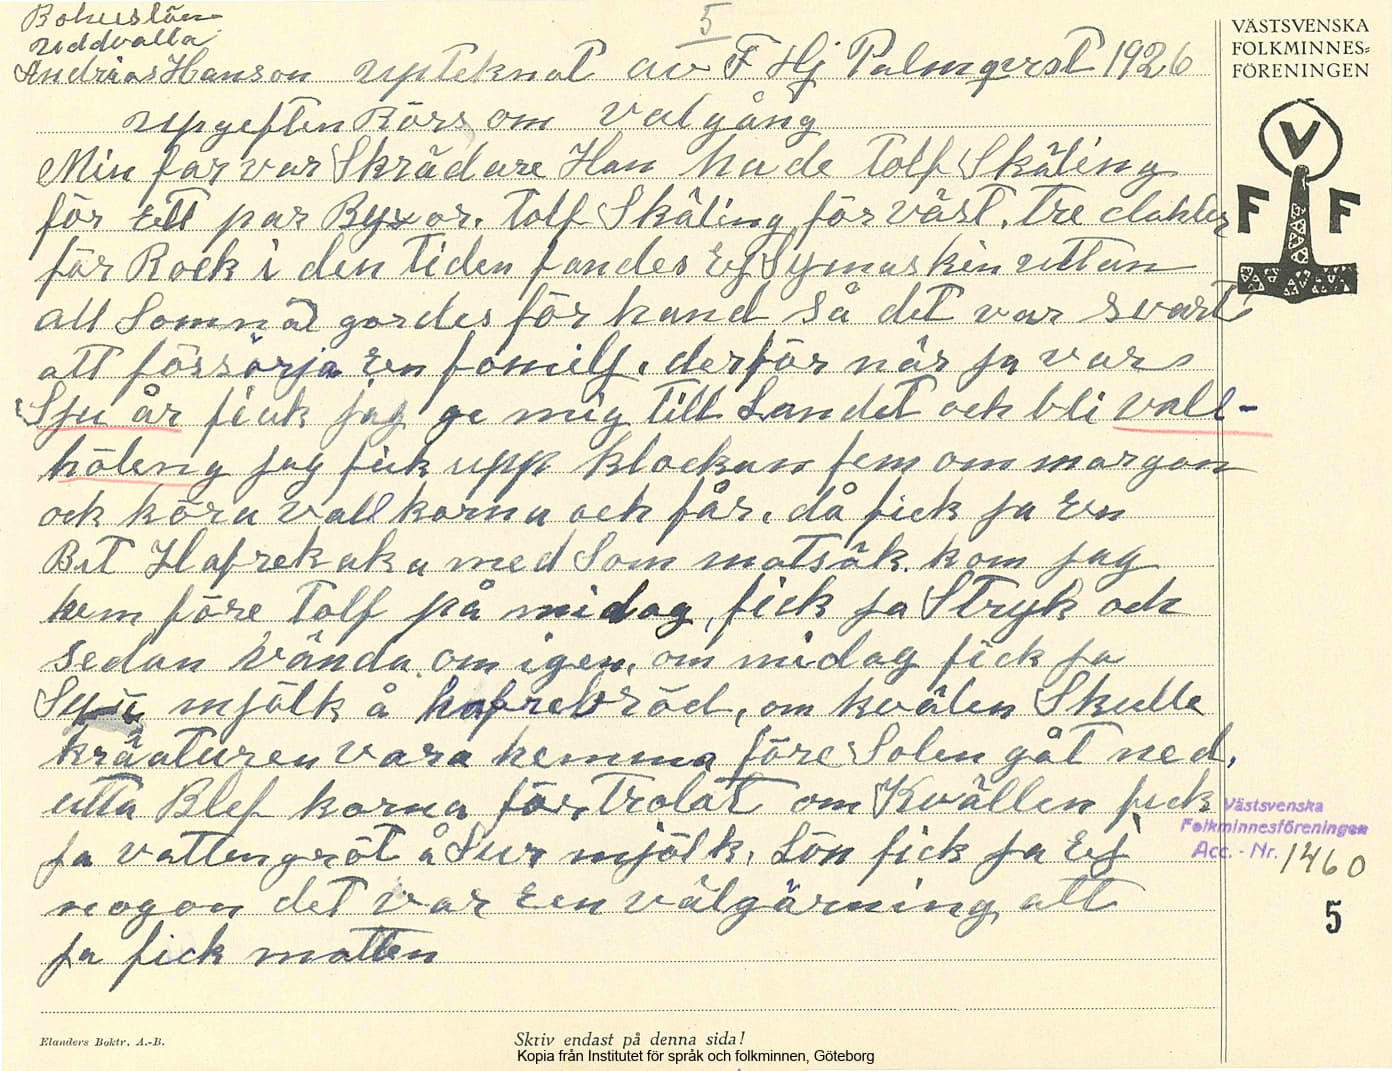 5
Bohuslän
Uddvalla
Andrias Hanson upteknat av F Hj Palmqvist 1926
upgeften Rörs om valgång
Min far var Skrädare Han hade tolf Skäling
för Ett par Byxor. tolf Skäling för väst. tre daler
för Rock i den tiden fandes Ej Symaskin uttan
all Somnad gordes för hand så det var svart
att försörja En familj. derför när ja var
Sju år fick jag ge mig till Landet och bli vall-
höleng jag fick upp klockan fem om morgon
ock köra vall korna och får. då fick ja En
Bit Hafrekaka med Som matsäk. kom jag
hem före tolf på midag, fick ja Stryk och
sedan vända om igen. om midag fick ja
Sur mjölk å hafrebröd, om kvälen Skulle
kräaturen vara hemma före Solen gåt ned.
utta Blef korna förtrolat om Kvällen fick
ja vattengröt å Sur mjölk. Lön fick ja Ej
nogon det var Een välgärning att
ja fick matten
VÄSTSVENSKA
FOLKMINNES-
FÖRENINGEN
V
F F
Västsvenska
Folkminnesföreningen
Acc. - Nr. 1460
5
Elanders Boktr. A.-B.
Skriv endast på denna sida!
Kopia från Institutet för språk och folkminnen, Göteborg